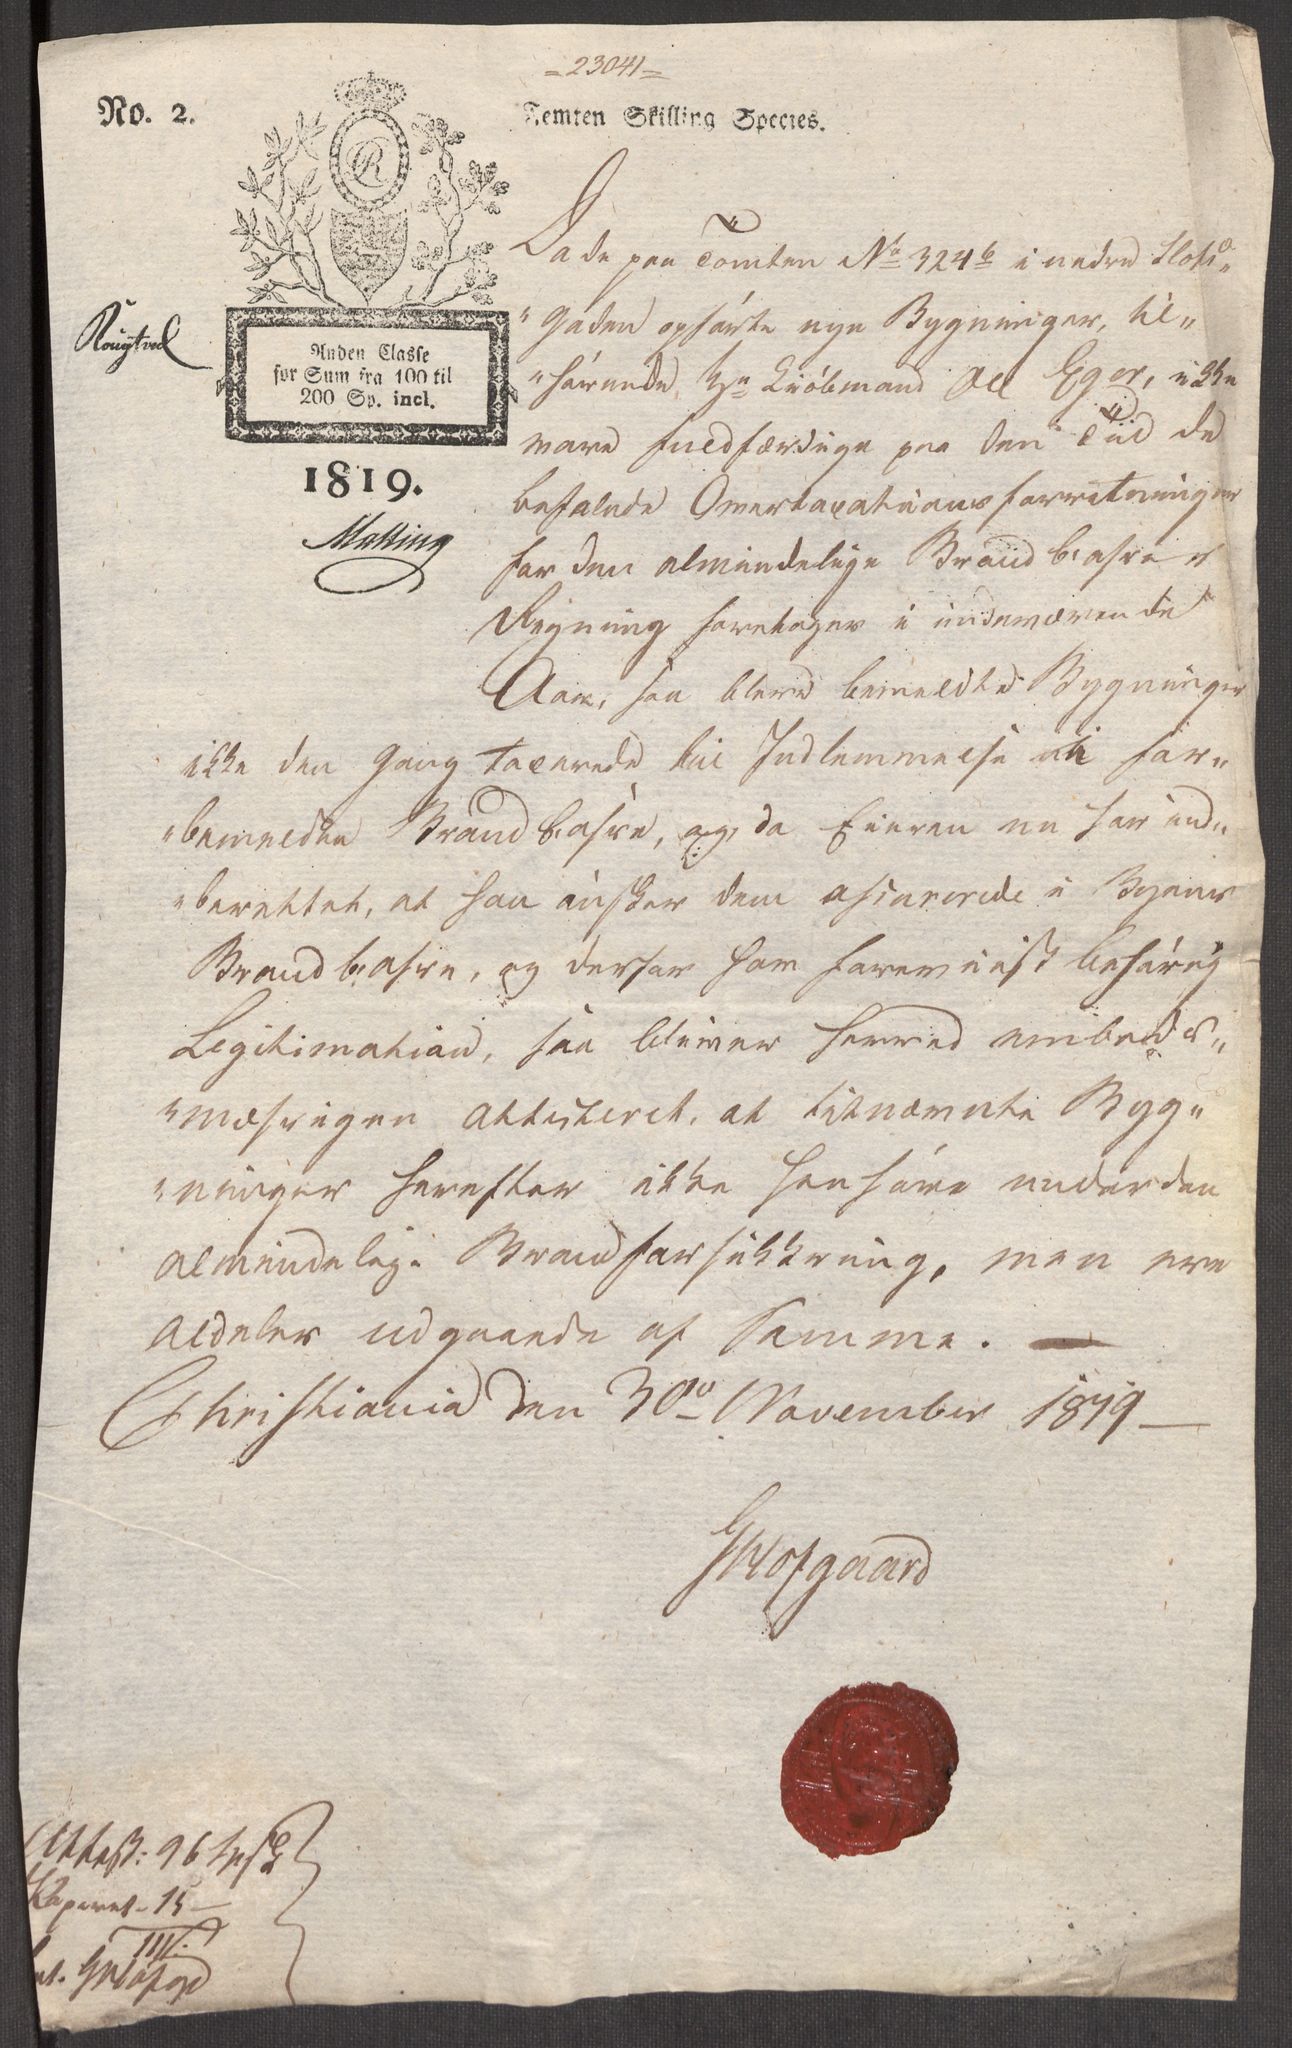 =23041=
No. 2.
Femten Skilling Species.
R
Anden Classe
for Sum fra 100 til
200 Sp. incl.
1819.
Da de paa Tomten No 324b i nedre Slots-
"gaden opførte nye Bygninger, til-
"hørende Hr Kiøbmand Ole Eger, ikke
vare fuldfærdige paa den Tiid de
befalede Overtaxationsforretninger
for den almindelige Brandkasses
Regning foretoges i indeværende
Aar, saa bleve bemeldte Bygninger
ikke den Gang taxerede til Indlemmelse i for-
"bemeldte Brandkasse, og, da Eieren nu har ind-
"berettet, at han ønsker dem assurerede i Byens
Brandkasse, og derfor har foreviist behørig
Legitimation, saa bliver herved embeds-
"mæssigen attesteret, at bemeldte Byg-
"ninger herefter ikke henhøre under den
almindelige Brandforsikkring, men ere
aldeles udgaaede af Samme. —
Christiania den 30te November 1819 —
Hofgaard
Attest: 96 sk
Papiret - 15 —
111.